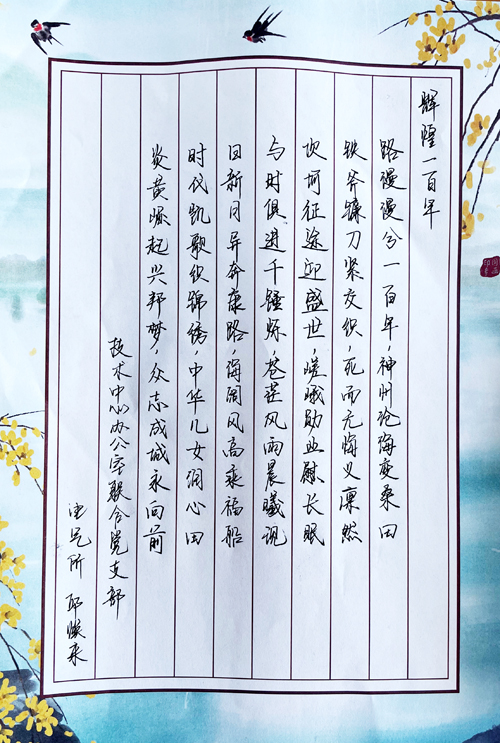 辉煌一百年
路漫漫兮一百年，神州沧海变桑田
铁斧镰刀紧交织，死而无悔义凛然
坎坷征途迎盛世，嵯峨勋业慰长眠
与时俱进千锤炼，苍茫风雨晨曦现
日新月异奔康路，海阔风高乘福船
时代凯歌织锦绣，中华儿女润心田
炎黄崛起兴邦梦，众志成城永向前
技术中心办公室联合党支部
所 邱